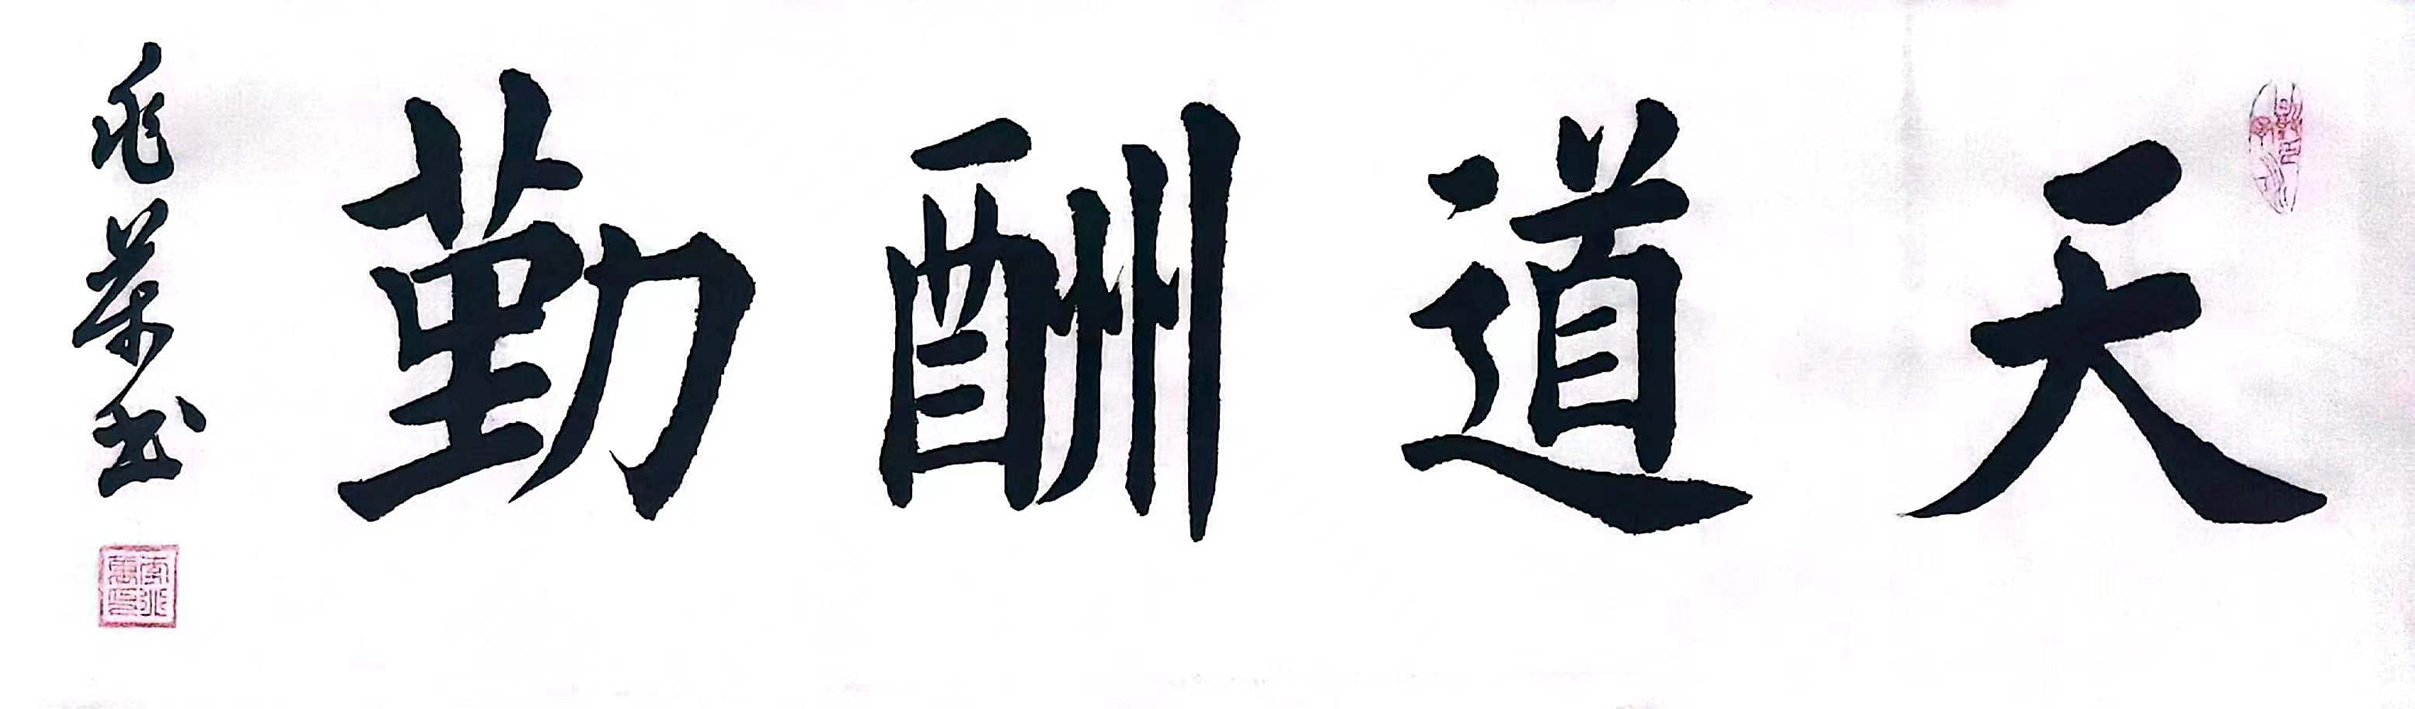 天道酬勤
兆荣书